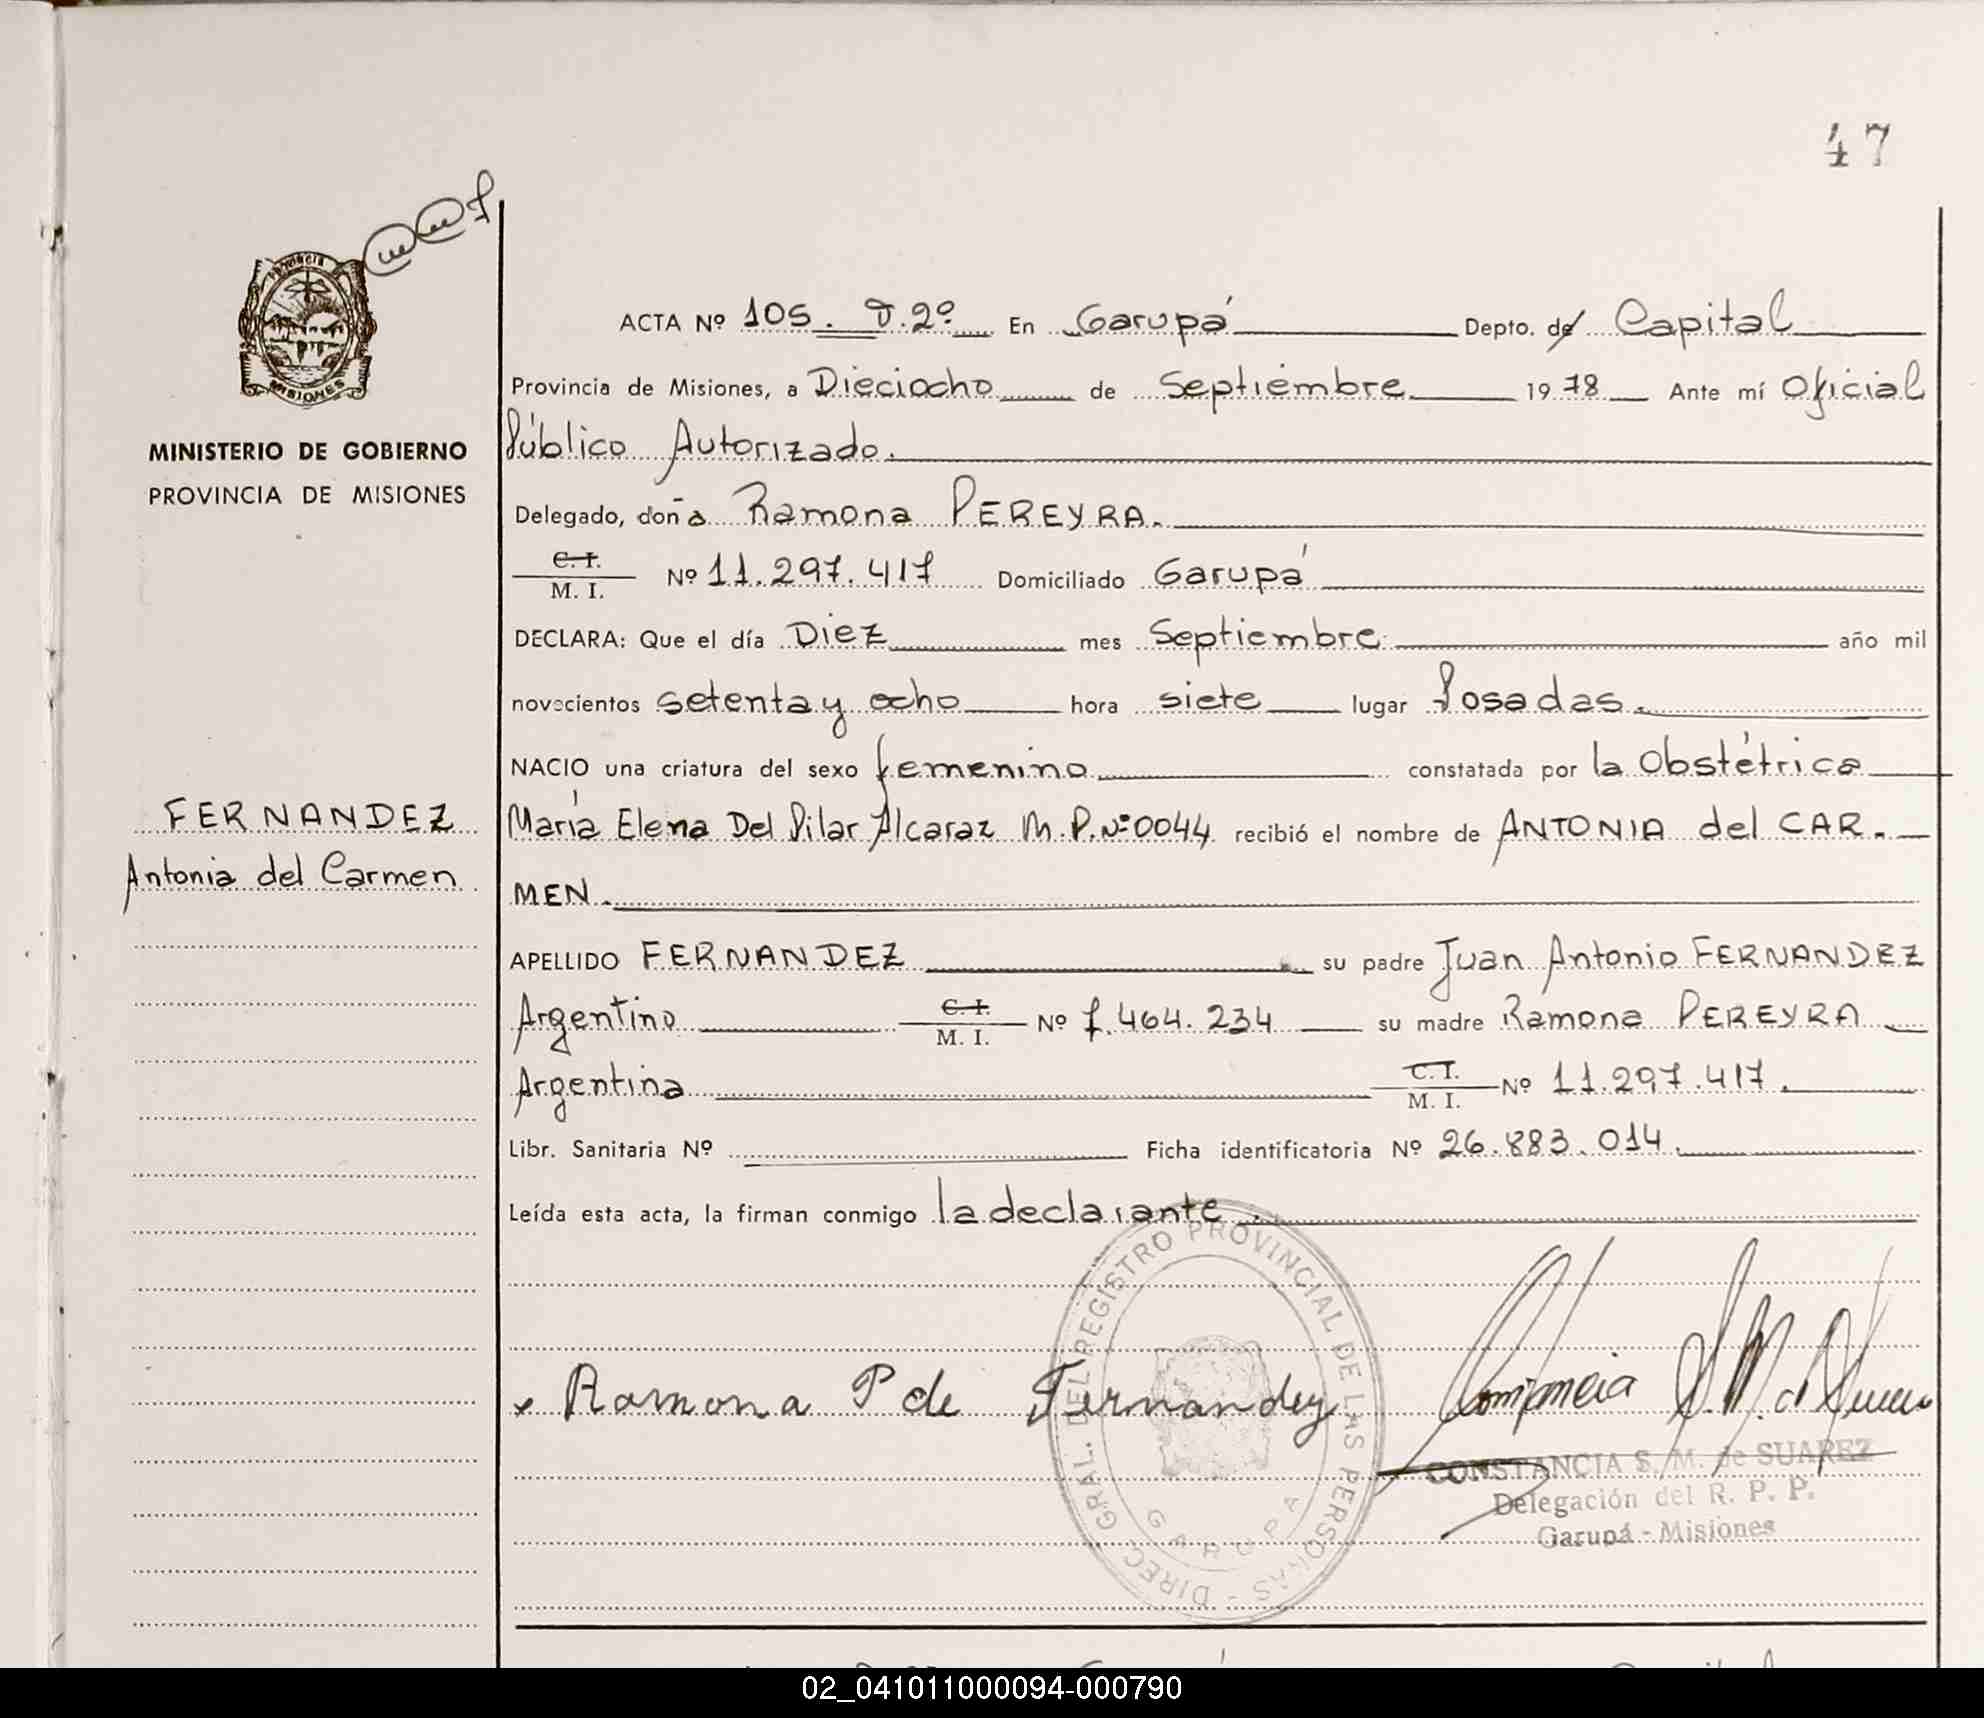 47
PROVINCIA
MISIONES
MINISTERIO DE GOBIERNO
PROVINCIA DE MISIONES
FERNANDEZ
Antonia del Carmen
ACTA Nº 105. T.2º En Garupá Depto. de Capital
Provincia de Misiones, a Dieciocho de Septiembre 1978 Ante mí Oficial
Público Autorizado.
Delegado, doña Ramona PEREYRA.
C. I.
M. I. Nº 11.297.417 Domiciliado Garupá
DECLARA: Que el día Diez mes Septiembre año mil
novecientos setenta y ocho hora siete lugar Posadas.
NACIO una criatura del sexo femenino constatada por la Obstétrica
María Elena Del Pilar Alcaraz M.P.Nº0044 recibió el nombre de ANTONIA del CAR-
MEN.
APELLIDO FERNANDEZ su padre Juan Antonio FERNANDEZ
Argentino C. I. M. I. Nº 7.464.234 su madre Ramona PEREYRA
Argentina C. I. M. I. Nº 11.297.417.
Libr. Sanitaria Nº Ficha identificatoria Nº 26.883.014.
Leída esta acta, la firman conmigo la declarante.
DIREC. GRAL. DEL REGISTRO PROVINCIAL DE LAS PERSONAS - GARUPA
Ramona P de Fernandez
CONSTANCIA S. M. de SUAREZ
Delegación del R. P. P.
Garupá - Misiones
02_041011000094-000790